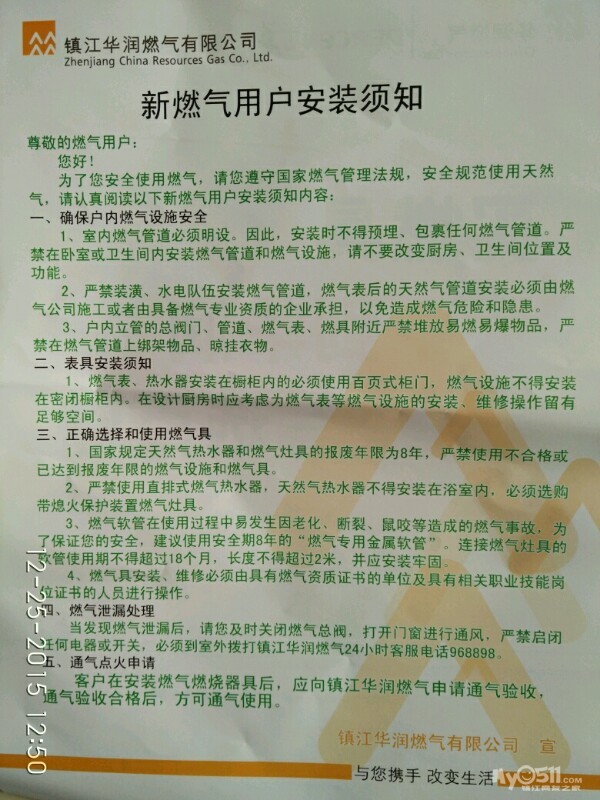 镇江华润燃气有限公司
Zhenjiang China Resources Gas Co., Ltd.
新燃气用户安装须知
尊敬的燃气用户：
您好！
为了您安全使用燃气，请您遵守国家燃气管理法规，安全规范使用天然
气，请认真阅读以下新燃气用户安装须知内容：
一、确保户内燃气设施安全
1、室内燃气管道必须明设。因此，安装时不得预埋、包裹任何燃气管道。严
禁在卧室或卫生间内安装燃气管道和燃气设施，请不要改变厨房、卫生间位置及
功能。
2、严禁装潢、水电队伍安装燃气管道，燃气表后的天然气管道安装必须由燃
气公司施工或者由具备燃气专业资质的企业承担，以免造成燃气危险和隐患。
3、户内立管的总阀门、管道、燃气表、燃具附近严禁堆放易燃易爆物品，严
禁在燃气管道上绑架物品、晾挂衣物。
二、表具安装须知
1、燃气表、热水器安装在橱柜内的必须使用百页式柜门，燃气设施不得安装
在密闭橱柜内。在设计厨房时应考虑为燃气表等燃气设施的安装、维修操作留有
足够空间。
三、正确选择和使用燃气具
1、国家规定天然气热水器和燃气灶具的报废年限为8年，严禁使用不合格或
已达到报废年限的燃气设施和燃气具。
2、严禁使用直排式燃气热水器，天然气热水器不得安装在浴室内，必须选购
带熄火保护装置燃气灶具。
3、燃气软管在使用过程中易发生因老化、断裂、鼠咬等造成的燃气事故，为
了保证您的安全，建议使用安全期8年的“燃气专用金属软管”。连接燃气灶具的
软管使用期不得超过18个月，长度不得超过2米，并应安装牢固。
4、燃气具安装、维修必须由具有燃气资质证书的单位及具有相关职业技能岗
位证书的人员进行操作。
四、燃气泄漏处理
当发现燃气泄漏后，请您及时关闭燃气总阀，打开门窗进行通风，严禁启闭
任何电器或开关，必须到室外拨打镇江华润燃气24小时客服电话968898。
五、通气点火申请
客户在安装燃气燃烧器具后，应向镇江华润燃气申请通气验收，
通气验收合格后，方可通气使用。
镇江华润燃气有限公司 宣
与您携手 改变生活
12-25-2015 12:50
My0511.com